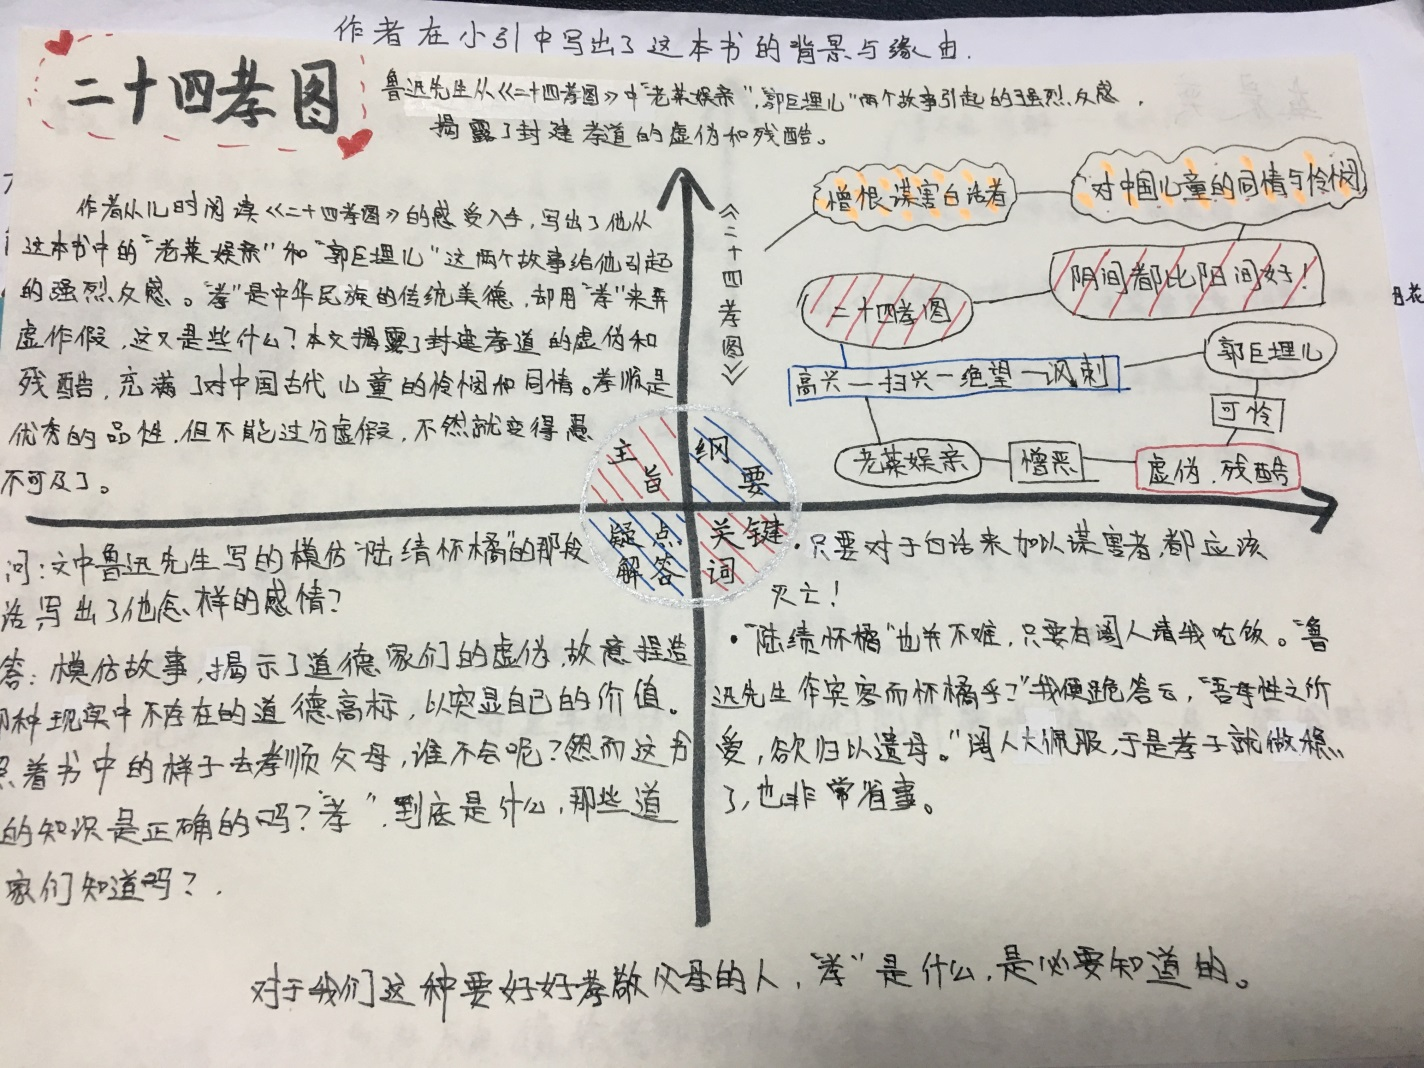 作者在小引中写出了这本书的背景与缘由.
二十四孝图
鲁迅先生从《二十四孝图》中"老莱娱亲","郭巨埋儿"两个故事引起的强烈反感,
揭露了封建孝道的虚伪和残酷。
作者从儿时阅读《二十四孝图》的感受入手,写出了他从
这本书中的"老莱娱亲"和"郭巨埋儿"这两个故事给他引起
的强烈反感。"孝"是中华民族的传统美德,却用"孝"来弄
虚作假,这又是些什么?本文揭露了封建孝道的虚伪和
残酷,充满了对中国古代儿童的怜悯和同情。孝顺是
优秀的品性,但不能过分虚假,不然就变得愚
不可及了。
《二十四孝图》
憎恨谋害白话者
对中国儿童的同情与怜悯
阴间都比阳间好!
二十四孝图
高兴一扫兴一绝望一讽刺
郭巨埋儿
可怜
老莱娱亲
憎恶
虚伪.残酷
主旨
纲要
疑点解答
关键词
问:文中鲁迅先生写的模仿"陆绩怀橘"的那段
话写出了他怎样的感情?
答:模仿故事,揭示了道德家们的虚伪,故意捏造
那种现实中不存在的道德高标,以突显自己的价值。
照着书中的样子去孝顺父母,谁不会呢?然而这书
的知识是正确的吗?"孝",到底是什么,那些道
家们知道吗?.
·只要对于白话来加以谋害者,都应该
灭亡!
·"陆绩怀橘"也并不难,只要有阔人请我吃饭。"鲁
迅先生作宾客而怀橘乎?"我便跪答云,"吾母性之所
爱,欲归以遗母。"阔人大佩服,于是孝子就做稳
了,也非常省事。
对于我们这种要好好孝敬父母的人,"孝"是什么,是必要知道的。